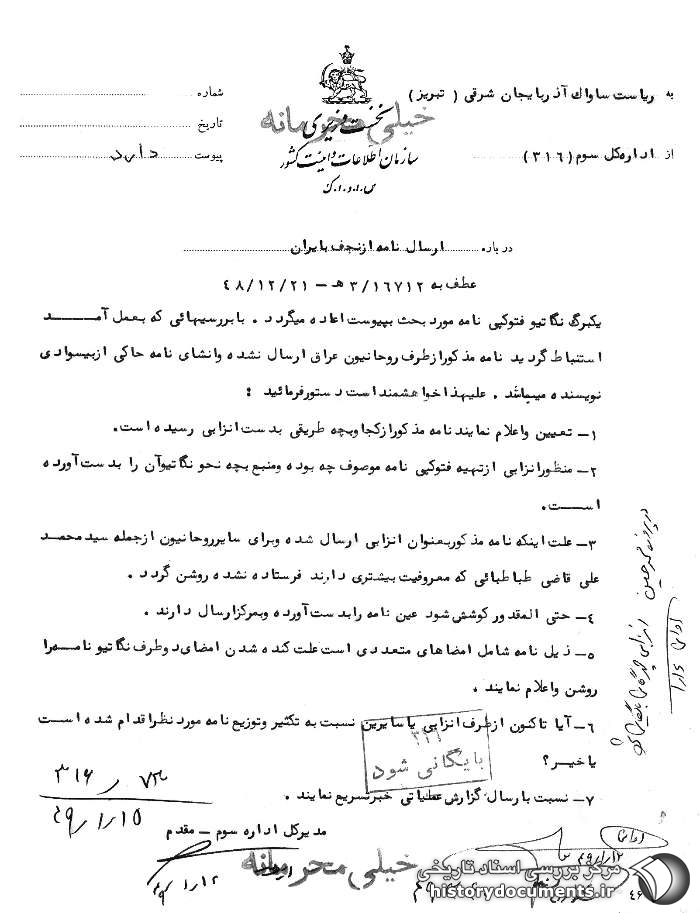 به ریاست ساواك آذربایجان شرقی ( تبریز )
از اداره کل سوم ( ۳۱۶ )
نخست وزیری
خیلی محرمانه
سازمان اطلاعات و امنیت کشور
س.ا.و.ا.ک
شماره
تاریخ
پیوست دارد
درباره ارسال نامه ازنجف بایران
عطف به ۳/۱۶۷۱۲ هـ – ۴۸/۱۲/۲۱
یکبرگ نگاتیو فتوکپی نامه مورد بحث بپیوست اعاده میگردد . با بررسیهائی که بعمل آمـــد
استنباط گردید نامه مذکور ازطرف روحانیون عراق ارسال نشده وانشای نامه حاکی ازبیسوادی
نویسنده میباشد . علیهذا خواهشمند است دستورفرمائید :
۱– تعیین واعلام نمایند نامه مذکور ازکجا وبچه طریقی بدست انزابی رسیده است.
۲– منظور انزابی ازتهیه فتوکپی نامه موصوف چه بوده ومنبع بچه نحو نگاتیوآن را بدست آورده
اســـت.
۳– علت اینکه نامه مذکور بعنوان انزابی ارسال شده وبرای سایر روحانیون ازجمله سید محمد
علی قاضی طباطبائی که معروفیت بیشتری دارند فرستاده نشده روشن گردد .
۴– حتی المقدور کوشش شود عین نامه را بدست آورده وبمرکز ارسال دارند .
۵– ذیل نامه شامل امضاهای متعددی است علت کنده شدن امضای دوطرف نگاتیو نامه را
روشن واعلام نمایند .
۶– آیا تاکنون ازطرف انزابی یا سایرین نسبت به تکثیر وتوزیع نامه مورد نظر اقدام شده است
یا خیر ؟
۳۲۱
بایگانی شود
۷– نسبت بارسال گزارش عملیاتی خبر تسریع نمایند .
مدیرکل اداره سوم – مقدم
۳۱۶ ر ۷۳
۴۹/۱/۱۵
۴۹/۱/۱۲
خیلی محرمانه
۴۹/۱/۱۲
مرکز بررسی اسناد تاریخی
historydocuments.ir